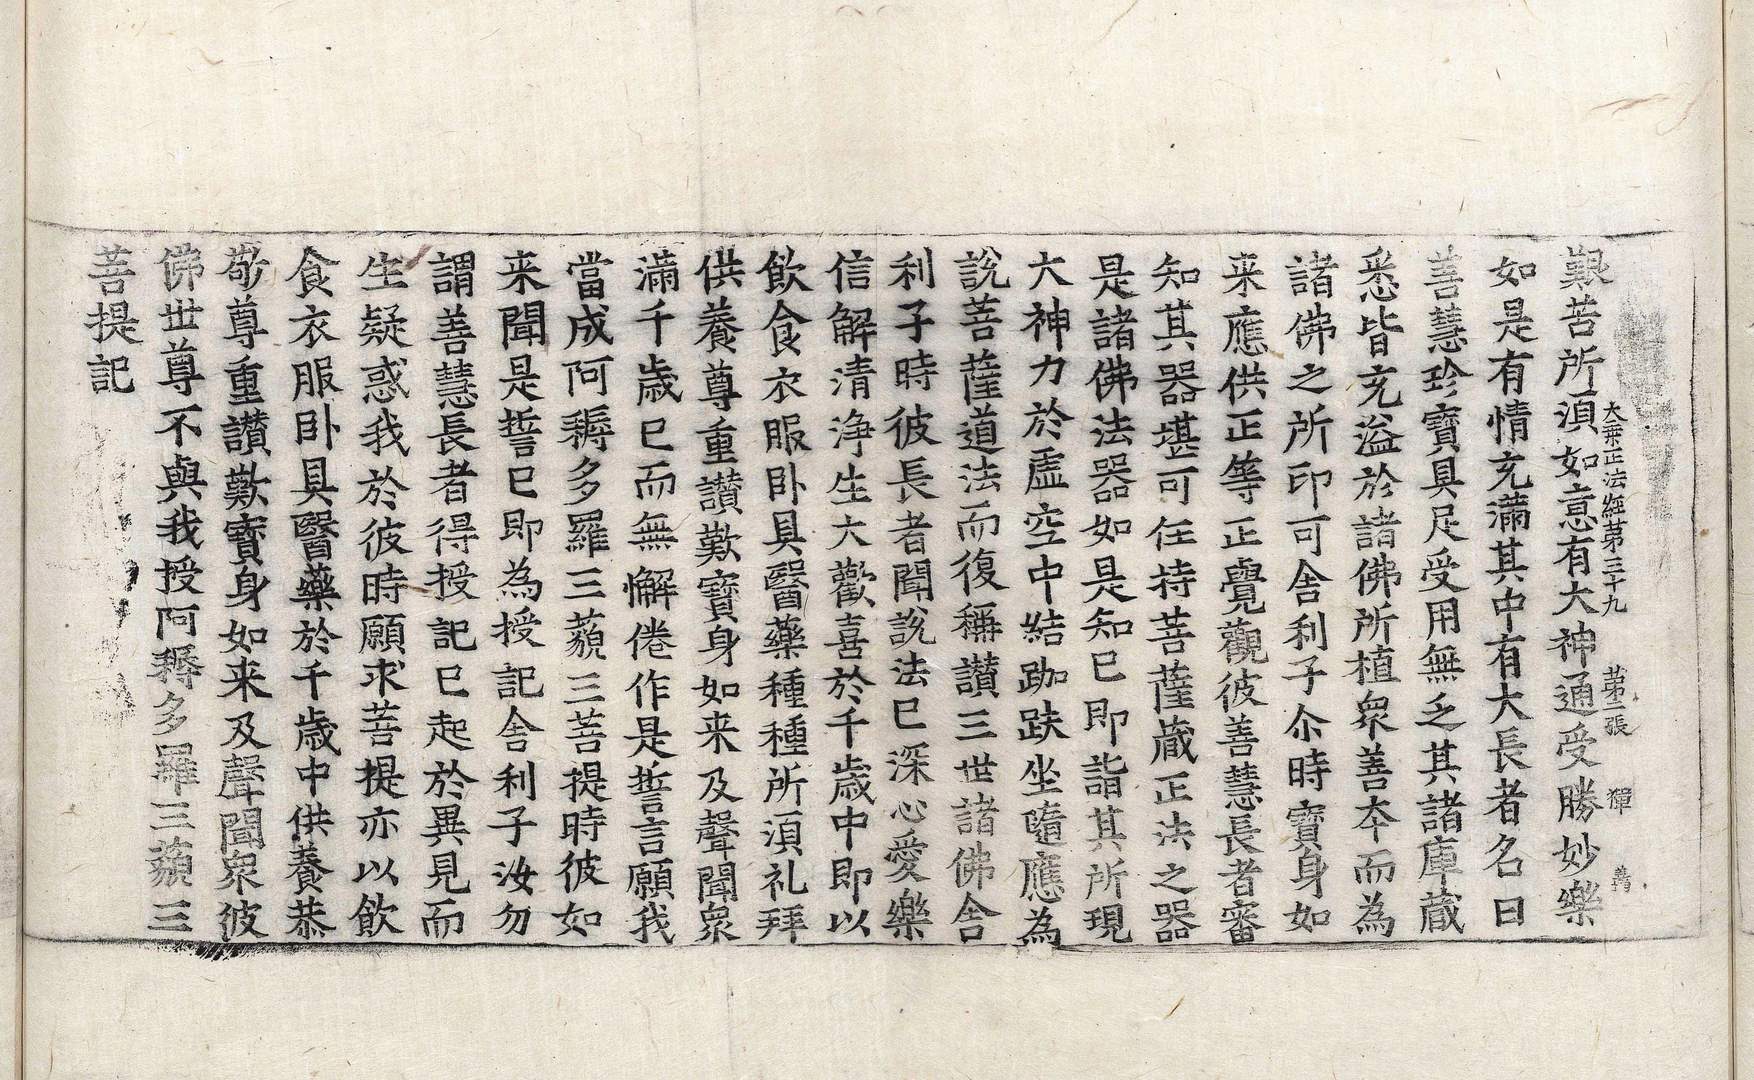 艱苦所湏如意有大神通受勝妙樂
大乗正法經苐三十九　苐三張　獐　善
如是有情充滿其中有大長者名曰
善慧珍寶具足受用無乏其諸庫藏
悉皆充溢於諸佛所植衆善夲而為
諸佛之所印可舎利子尒時寶身如
来應供正等正覺觀彼善慧長者審
知其器堪可任持菩薩藏正法之器
是諸佛法器如是知已即詣其所現
大神力於虛空中結跏趺坐隨應為
說菩薩道法而復稱讃三世諸佛舎
利子時彼長者聞說法已深心愛樂
信解清浄生大歡喜於千歲中即以
飲食衣服卧具醫藥種種所湏礼拜
供養尊重讃歎寶身如来及聲聞衆
滿千歲已而無懈倦作是誓言願我
當成阿耨多羅三藐三菩提時彼如
来聞是誓已即為授記舎利子汝勿
謂善慧長者得授記已起於異見而
生疑惑我於彼時願求菩提亦以飲
食衣服卧具醫藥於千歲中供養恭
敬尊重讃歎寶身如来及聲聞衆彼
佛世尊不與我授阿耨多羅三藐三
菩提記